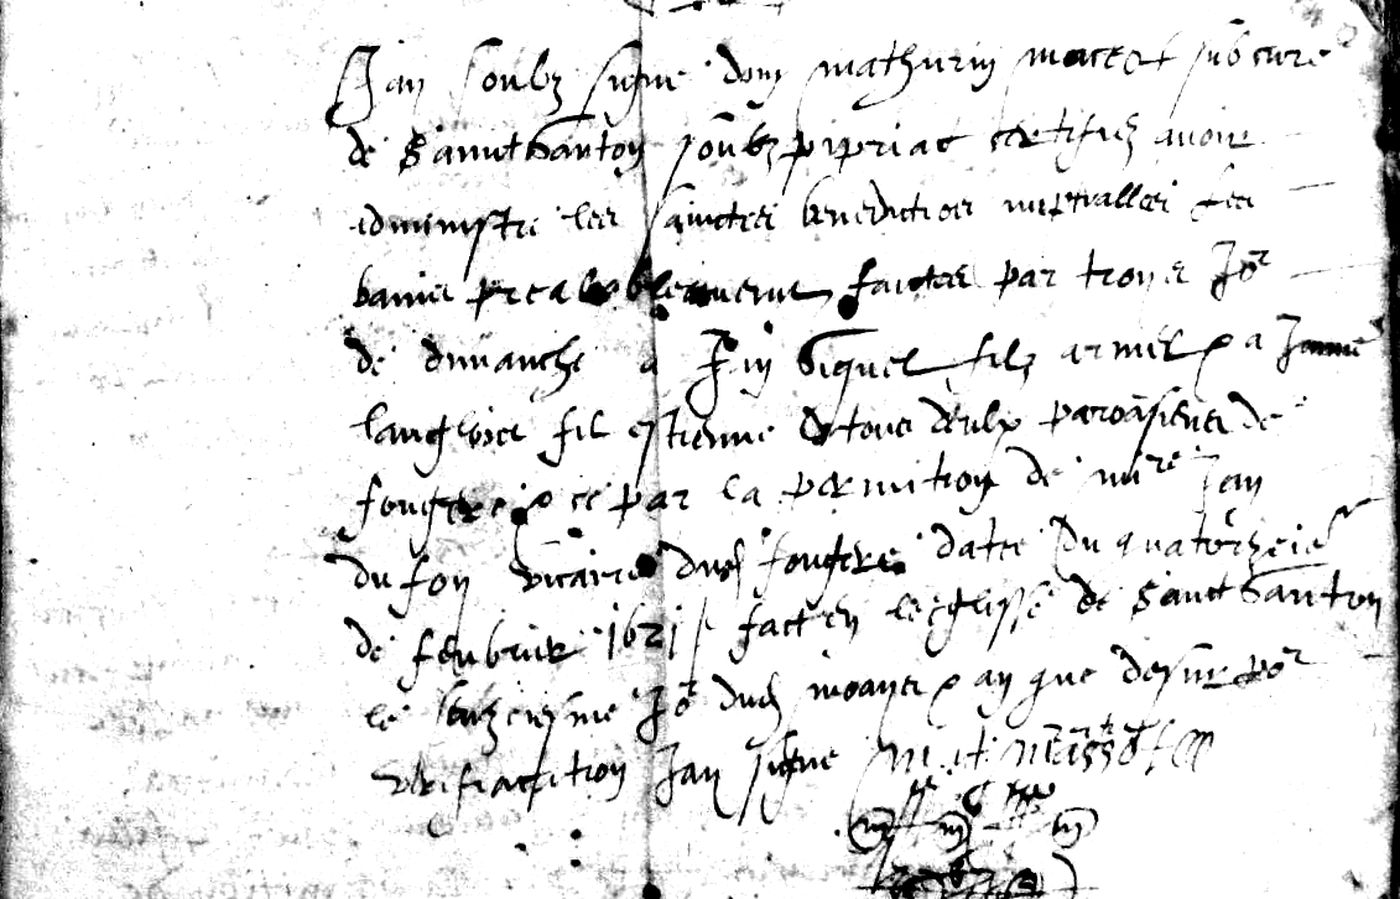 Jay soubz signe dom mathurin macet subcure
de Sainct Ganton soubz pipriac certifie avoir
administre les sainctes benedictions nuptualles les
bannes prealablement faictes par troys Jor
de dimanche a Jan Biquel filz armel & a Janne
langloies fil estienne & tous deulx paroasiens de
fougere & ce par la permition de mire Jan
du fou vicaire dud fougere datte du quatorzeie
de feubvrier 1621 / fact en leglisse de Sainct Ganton
le seuzeiesme Jo dud moays & an que desur por
verification Jay signe M